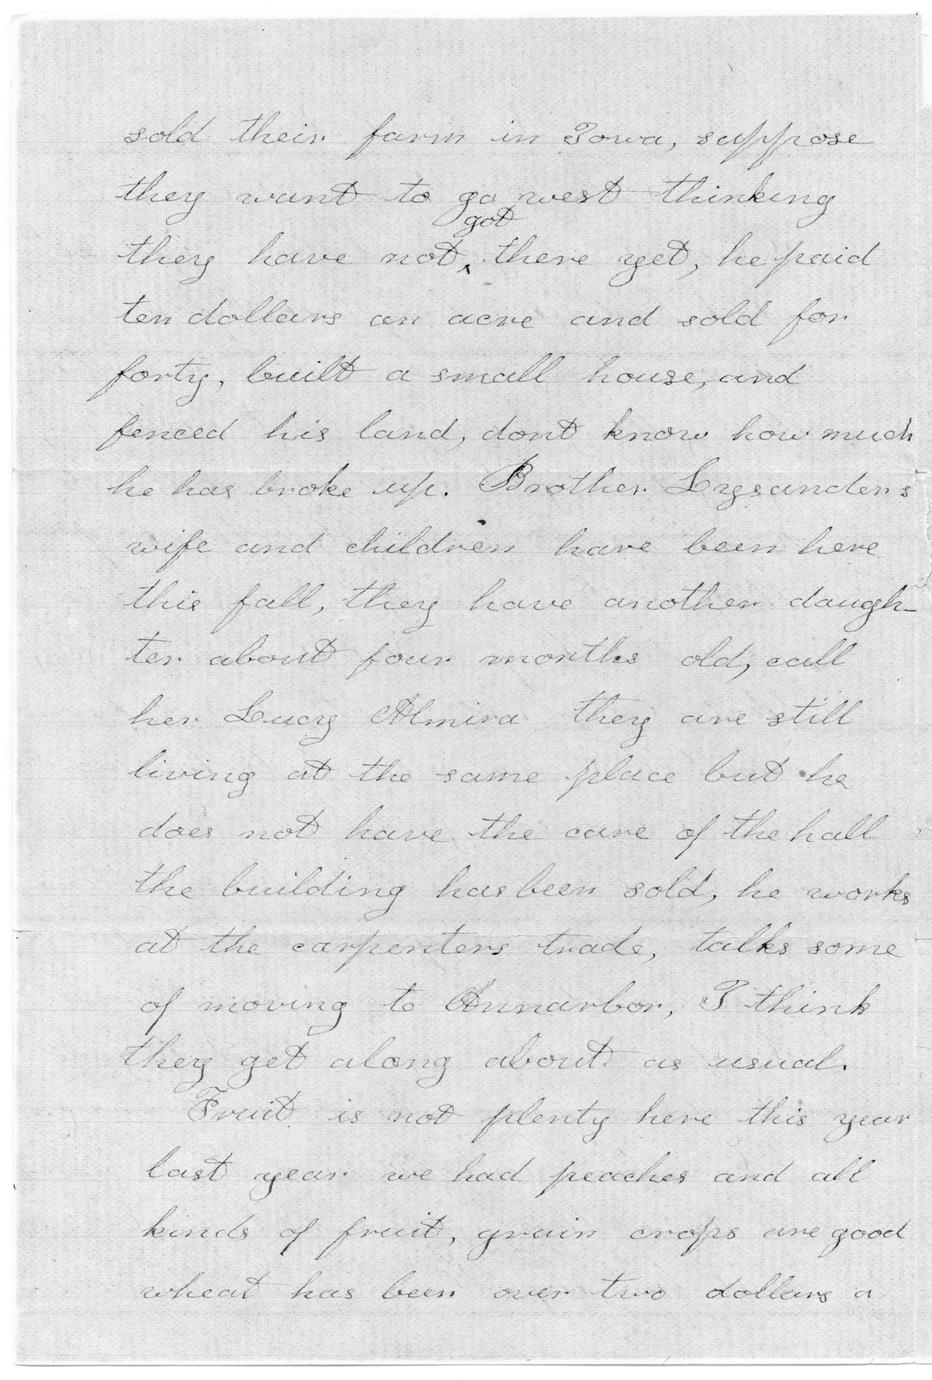 sold their farm in Iowa, suppose
they want to go west thinking
got
they have not, there yet, he paid
ten dollars an acre and sold for
forty, built a small house, and
fenced his land, dont know how much
he has broke up. Brother Lysanders
wife and children have been here
this fall, they have another daugh-
ter about four months old, call
her Lucy Almira they are still
living at the same place but he
does not have the care of the hall
the building has been sold, he works
at the carpenters trade, talks some
of moving to Annarbor, I think
they get along about as usual.
Fruit is not plenty here this year
last year we had peaches and all
kinds of fruit, grain crops are good
wheat has been over two dollars a